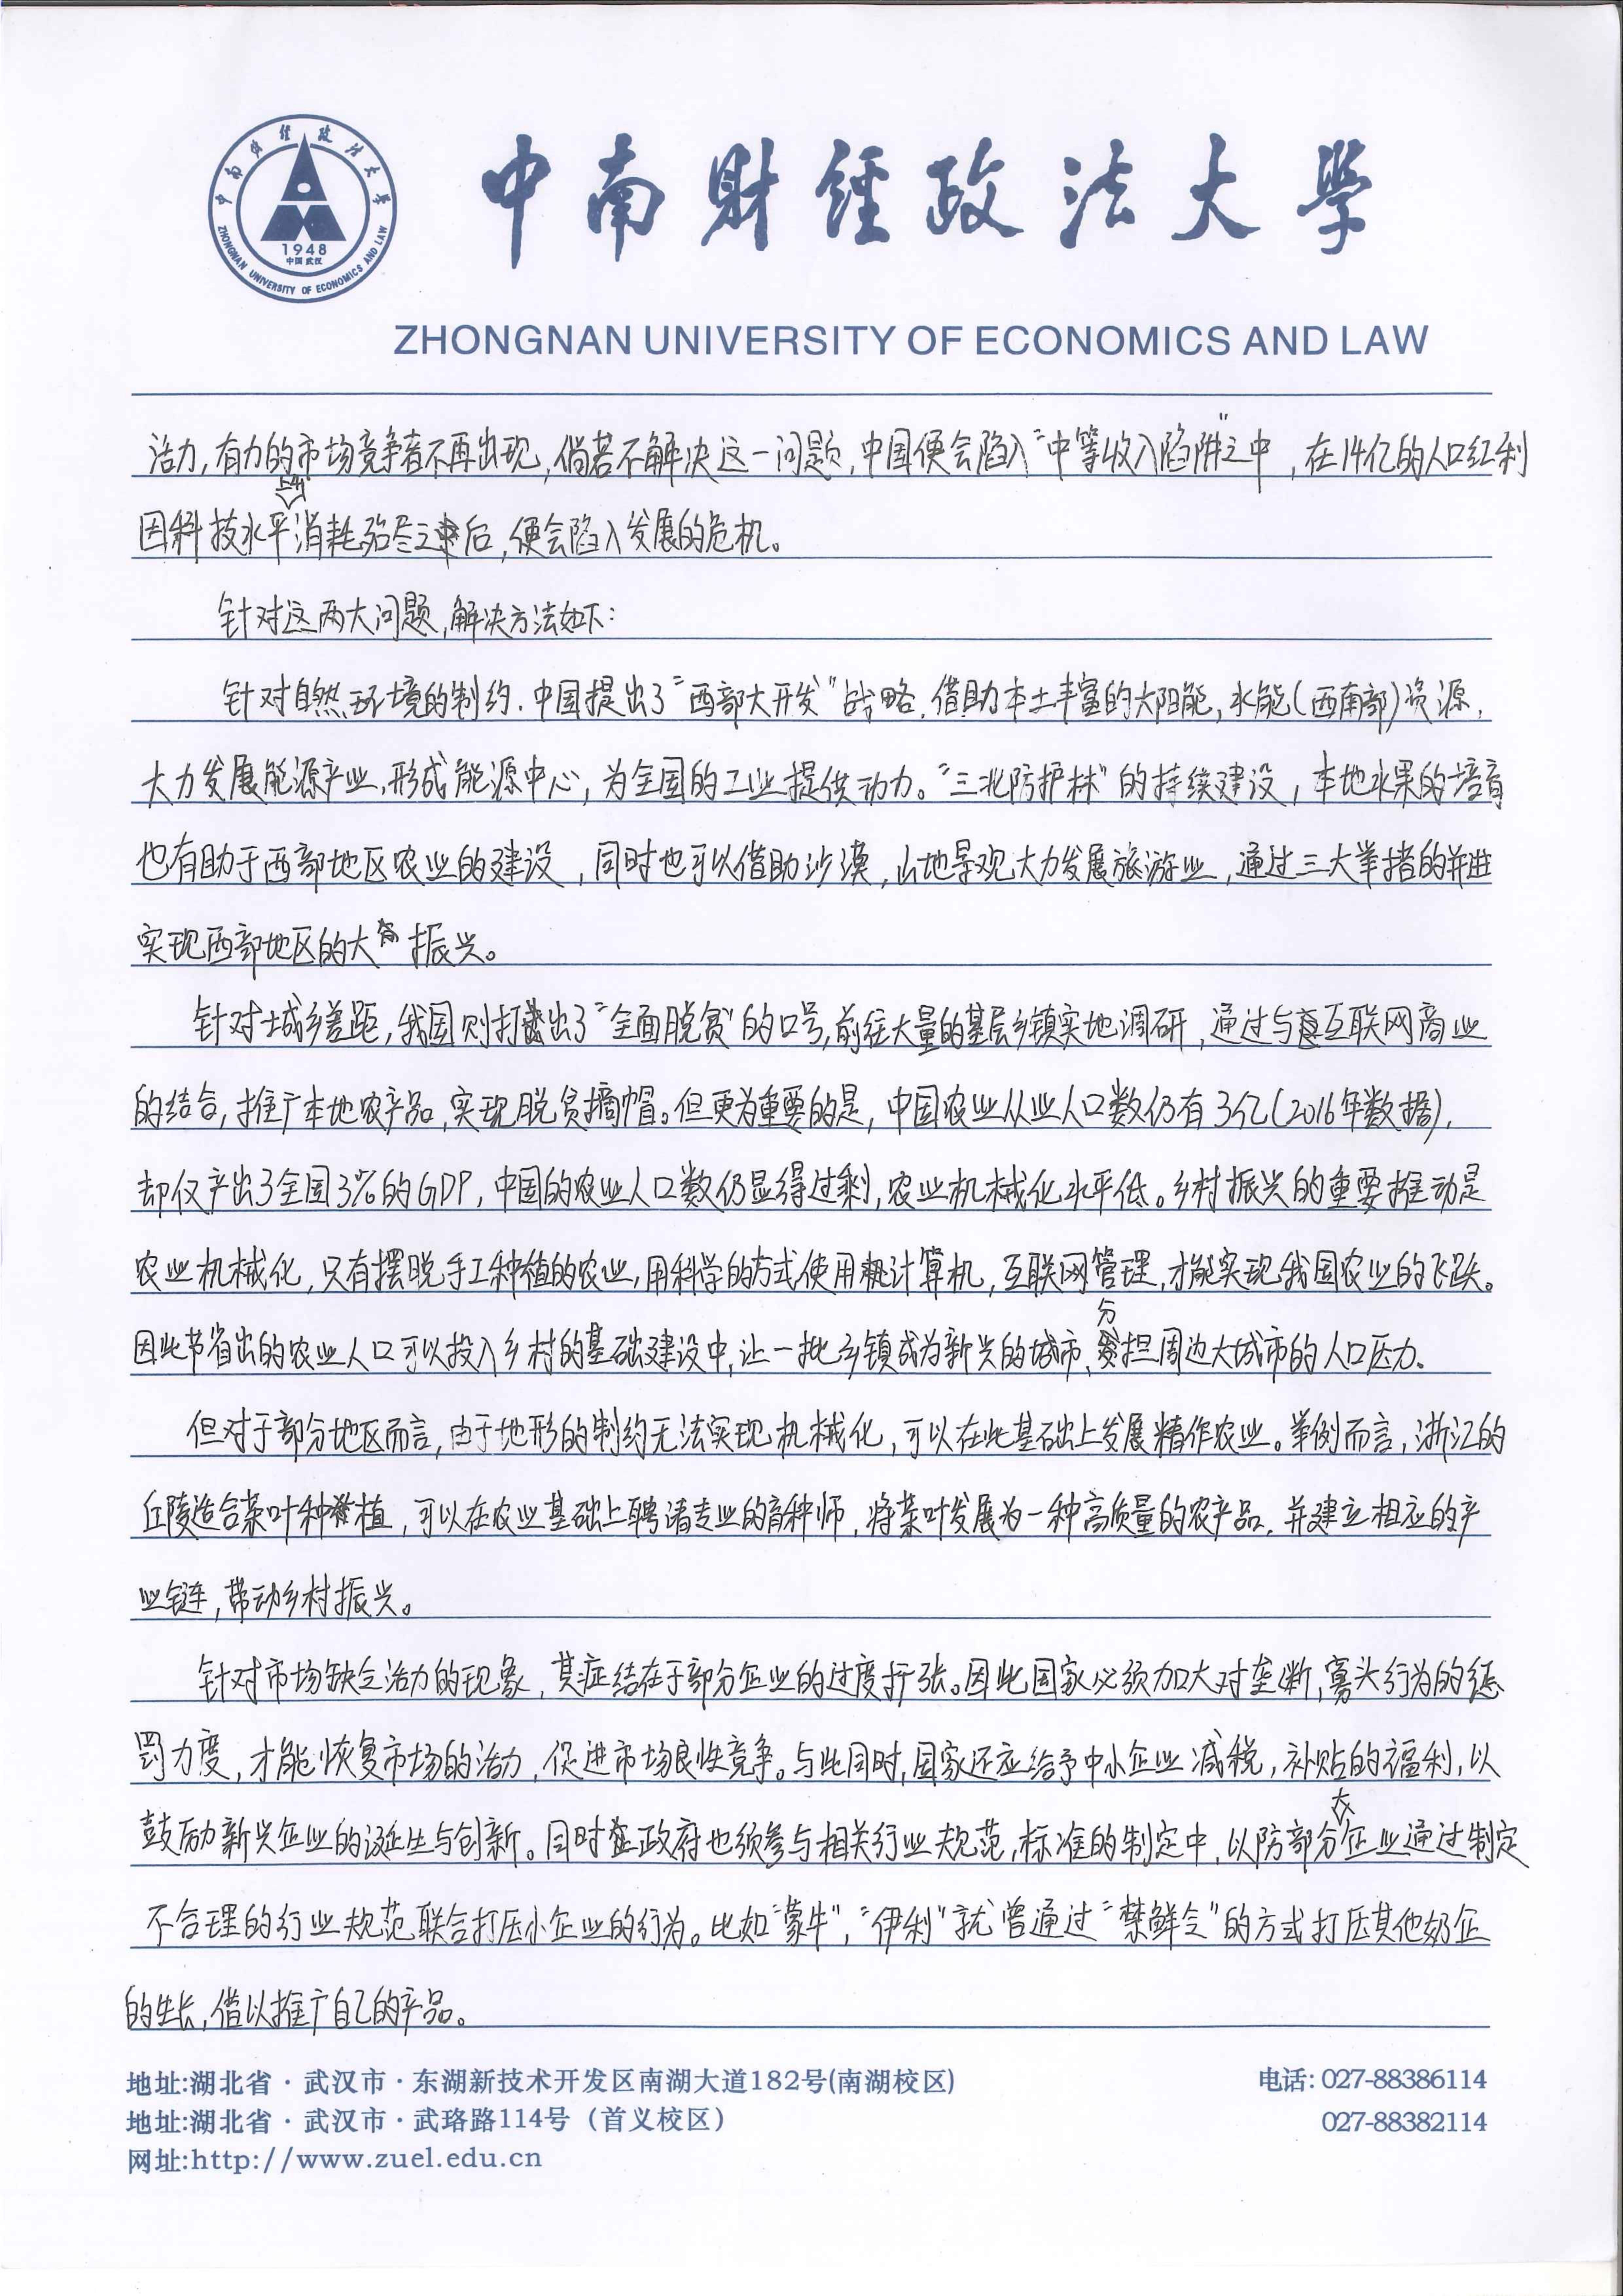 中南财经政法大学
1948
中国 武汉
ZHONGNAN UNIVERSITY OF ECONOMICS AND LAW
中南财经政法大学
ZHONGNAN UNIVERSITY OF ECONOMICS AND LAW
活力,有力的市场竞争者不再出现,倘若不解决这一问题,中国便会陷入“中等收入陷阱”之中,在14亿的人口红利
因科技水平消耗殆尽之后,便会陷入发展的危机。
针对这两大问题,解决方法如下:
针对自然环境的制约,中国提出了“西部大开发”战略,借助本土丰富的太阳能,水能(西南部)资源,
大力发展能源产业,形成能源中心,为全国的工业提供动力。“三北防护林”的持续建设,本地水果的培育
也有助于西部地区农业的建设,同时也可以借助沙漠,山地景观大力发展旅游业,通过三大举措的并进
实现西部地区的大振兴。
针对城乡差距,我国则打出了“全面脱贫”的口号,前往大量的基层乡镇实地调研,通过与互联网商业
的结合,推广本地农产品,实现脱贫摘帽。但更为重要的是,中国农业从业人口数仍有3亿(2016年数据),
却仅产出了全国3%的GDP,中国的农业人口数仍显得过剩,农业机械化水平低。乡村振兴的重要推动是
农业机械化,只有摆脱手工种植的农业,用科学的方式使用计算机,互联网管理,才能实现我国农业的飞跃。
因此节省出的农业人口可以投入乡村的基础建设中,让一批乡镇成为新兴的城市,分担周边大城市的人口压力。
但对于部分地区而言,由于地形的制约无法实现机械化,可以在此基础上发展精作农业。举例而言,浙江的
丘陵适合茶叶种植,可以在农业基础上聘请专业的育种师,将茶叶发展为一种高质量的农产品,并建立相应的产
业链,带动乡村振兴。
针对市场缺乏活力的现象,其症结在于部分企业的过度扩张。因此国家必须加大对垄断,寡头行为的惩
罚力度,才能恢复市场的活力,促进市场良性竞争。与此同时,国家还应给予中小企业减税,补贴的福利,以
鼓励新兴企业的诞生与创新。同时政府也须参与相关行业规范,标准的制定中,以防部分大企业通过制定
不合理的行业规范联合打压小企业的行为。比如“蒙牛”,“伊利”就曾通过“禁鲜令”的方式打压其他奶企
的生长,借以推广自己的产品。
地址:湖北省·武汉市·东湖新技术开发区南湖大道182号(南湖校区) 电话: 027-88386114
地址:湖北省·武汉市·武珞路114号(首义校区) 027-88382114
网址:http://www.zuel.edu.cn